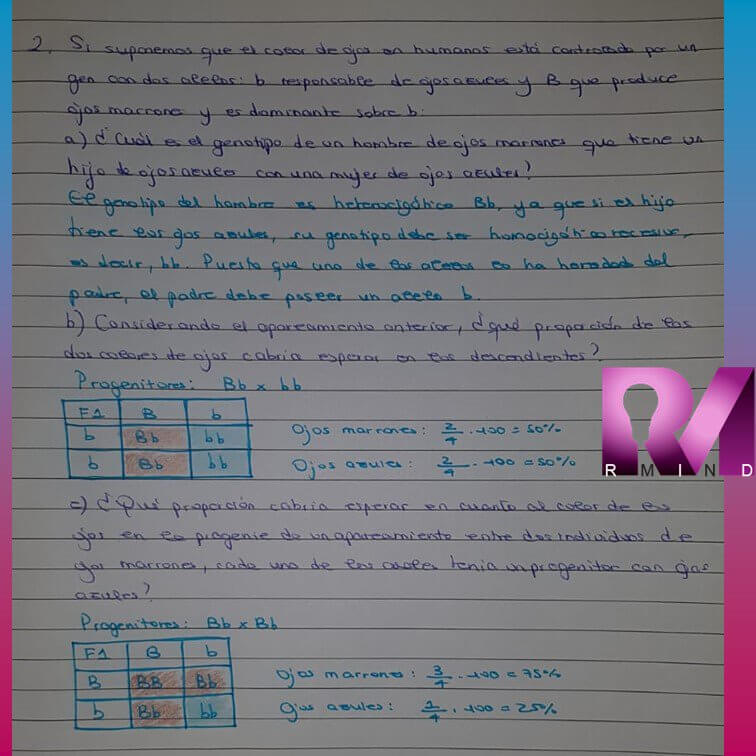 2. Si suponemos que el color de ojos en humanos está controlado por un
gen con dos alelos: b responsable de ojos azules y B que produce
ojos marrone y es dominante sobre b:
a) ¿Cuál es el genotipo de un hombre de ojos marrones que tiene un
hijo de ojos azules con una mujer de ojos azules?
El genotipo del hombre es heterocigótico Bb, ya que si el hijo
tiene los ojos azules, su genotipo debe ser homocigótico recesivo,
es decir, bb. Puesto que uno de los alelos lo ha heredado del
padre, el padre debe poseer un alelo b.
b) Considerando el apareamiento anterior, ¿qué proporción de los
dos colores de ojos cabría esperar en los descendientes?
Progenitores: Bb x bb
F1 B b
b Bb bb
b Bb bb
Ojos marrones: 2/4 · 100 = 50%
Ojos azules: 2/4 · 100 = 50%
RMIND
c) ¿Qué proporción cabría esperar en cuanto al color de los
ojos en la progenie de un apareamiento entre dos individuos de
ojos marrones, cada uno de los cuales tenía un progenitor con ojos
azules?
Progenitores: Bb x Bb
F1 B b
B BB Bb
b Bb bb
Ojos marrones: 3/4 · 100 = 75%
Ojos azules: 1/4 · 100 = 25%